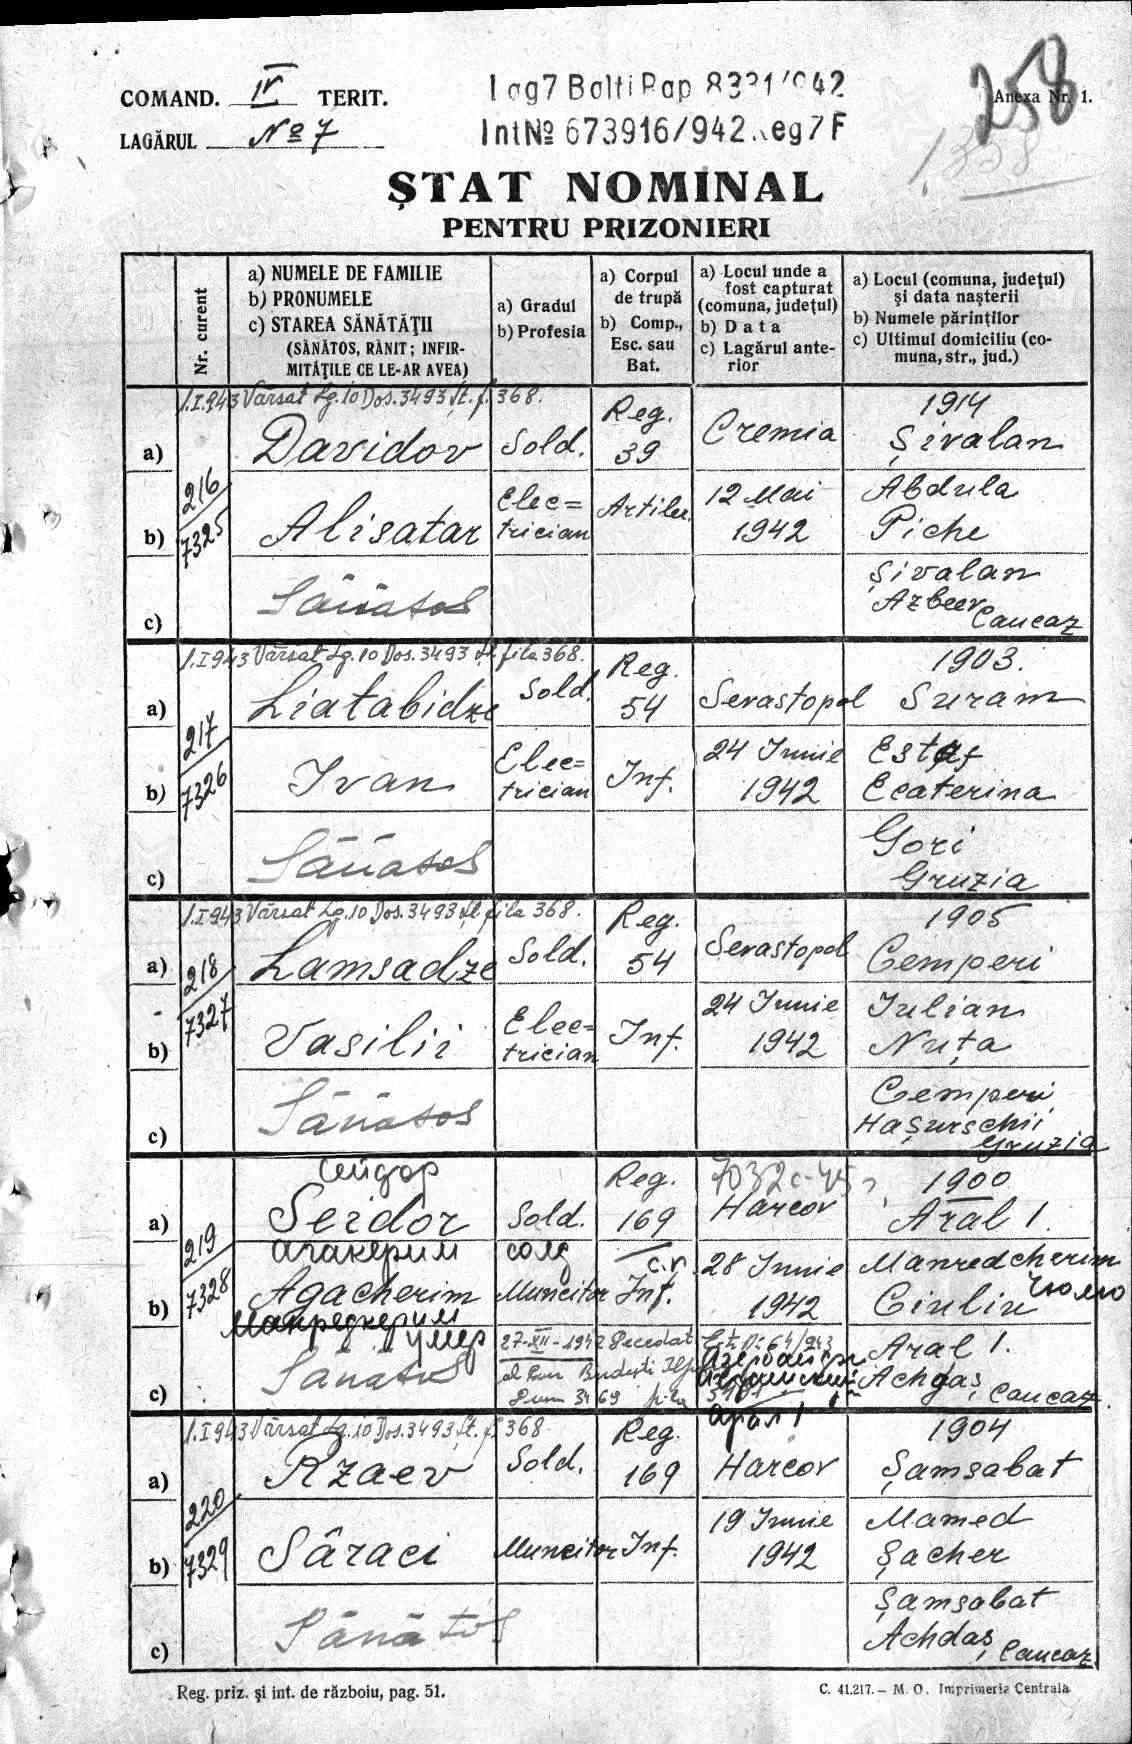 258
COMAND. IV TERIT.
Lag7 Balti Rap 8331/942
Anexa Nr. 1.
LAGĂRUL No 7
IntNo 673916/942 Reg7F
1358
ŞTAT NOMINAL
PENTRU PRIZONIERI
Nr. curent
a) NUMELE DE FAMILIE
b) PRONUMELE
c) STAREA SĂNĂTĂŢII
(SĂNĂTOS, RĂNIT; INFIR-
MITĂŢILE CE LE-AR AVEA)
a) Gradul
b) Profesia
a) Corpul
de trupă
b) Comp.,
Esc. sau
Bat.
a) Locul unde a
fost capturat
(comuna, judeţul)
b) Data
c) Lagărul ante-
rior
a) Locul (comuna, judeţul)
şi data naşterii
b) Numele părinţilor
c) Ultimul domiciliu (co-
muna, str., jud.)
1.I.943 Vărsat Lg.10 Dos.3493 Şt. f. 368.
216
7325
a) Davidov
Sold.
Reg.
39
Cremia
1914
Şivalan
b) Alisatar
Elec=
trician
Artiler.
12 Mai
1942
Abdula
Piche
c) Sănătos
Şivalan
Azbeer
Caucaz
1.I943 Vărsat Lg.10 Dos.3493 Şt fila 368.
217
7326
a) Liatabidze
Sold.
Reg.
54
Sevastopol
1903.
Suram
b) Ivan
Elec=
trician
Inf.
24 Iunie
1942
Estaf
Ecaterina
c) Sănătos
Gori
Gruzia
1.I943 Vărsat Lg.10 Dos.3493 Şt fila 368.
218
7327
a) Lamsadze
Sold.
Reg.
54
Sevastopol
1905
Cemperi
b) Vasilii
Elec=
trician
Inf.
24 Iunie
1942
Iulian
Nuţa
c) Sănătos
Cemperi
Haşurschii
Gruzia
219
7328
Сейдор
a) Seidor
Sold.
Reg.
169
Harcov
1900
Aral 1.
агакерим
солд
с.п.
b) Agacherim
Muncitor
Inf.
28 Iunie
1942
Manredcherim
Ciuliu
Чюлю
Манредкерим
умер
c) Sănătos
27-XII-1942 Decedat
Budeşti
Арал 1
Aral 1.
Achdaş
Caucaz.
1.I943 Vărsat Lg.10 Dos.3493 Şt. f. 368
220
7329
a) Rzaev
Sold.
Reg.
169
Harcov
1904
Şamsabat
b) Sâraci
Muncitor
Inf.
19 Iunie
1942
Mamed
Şacher
c) Sănătos
Şamsabat
Achdaş
Caucaz.
Reg. priz. şi int. de războiu, pag. 51.
C. 41.217.— M. O. Imprimeria Centrala